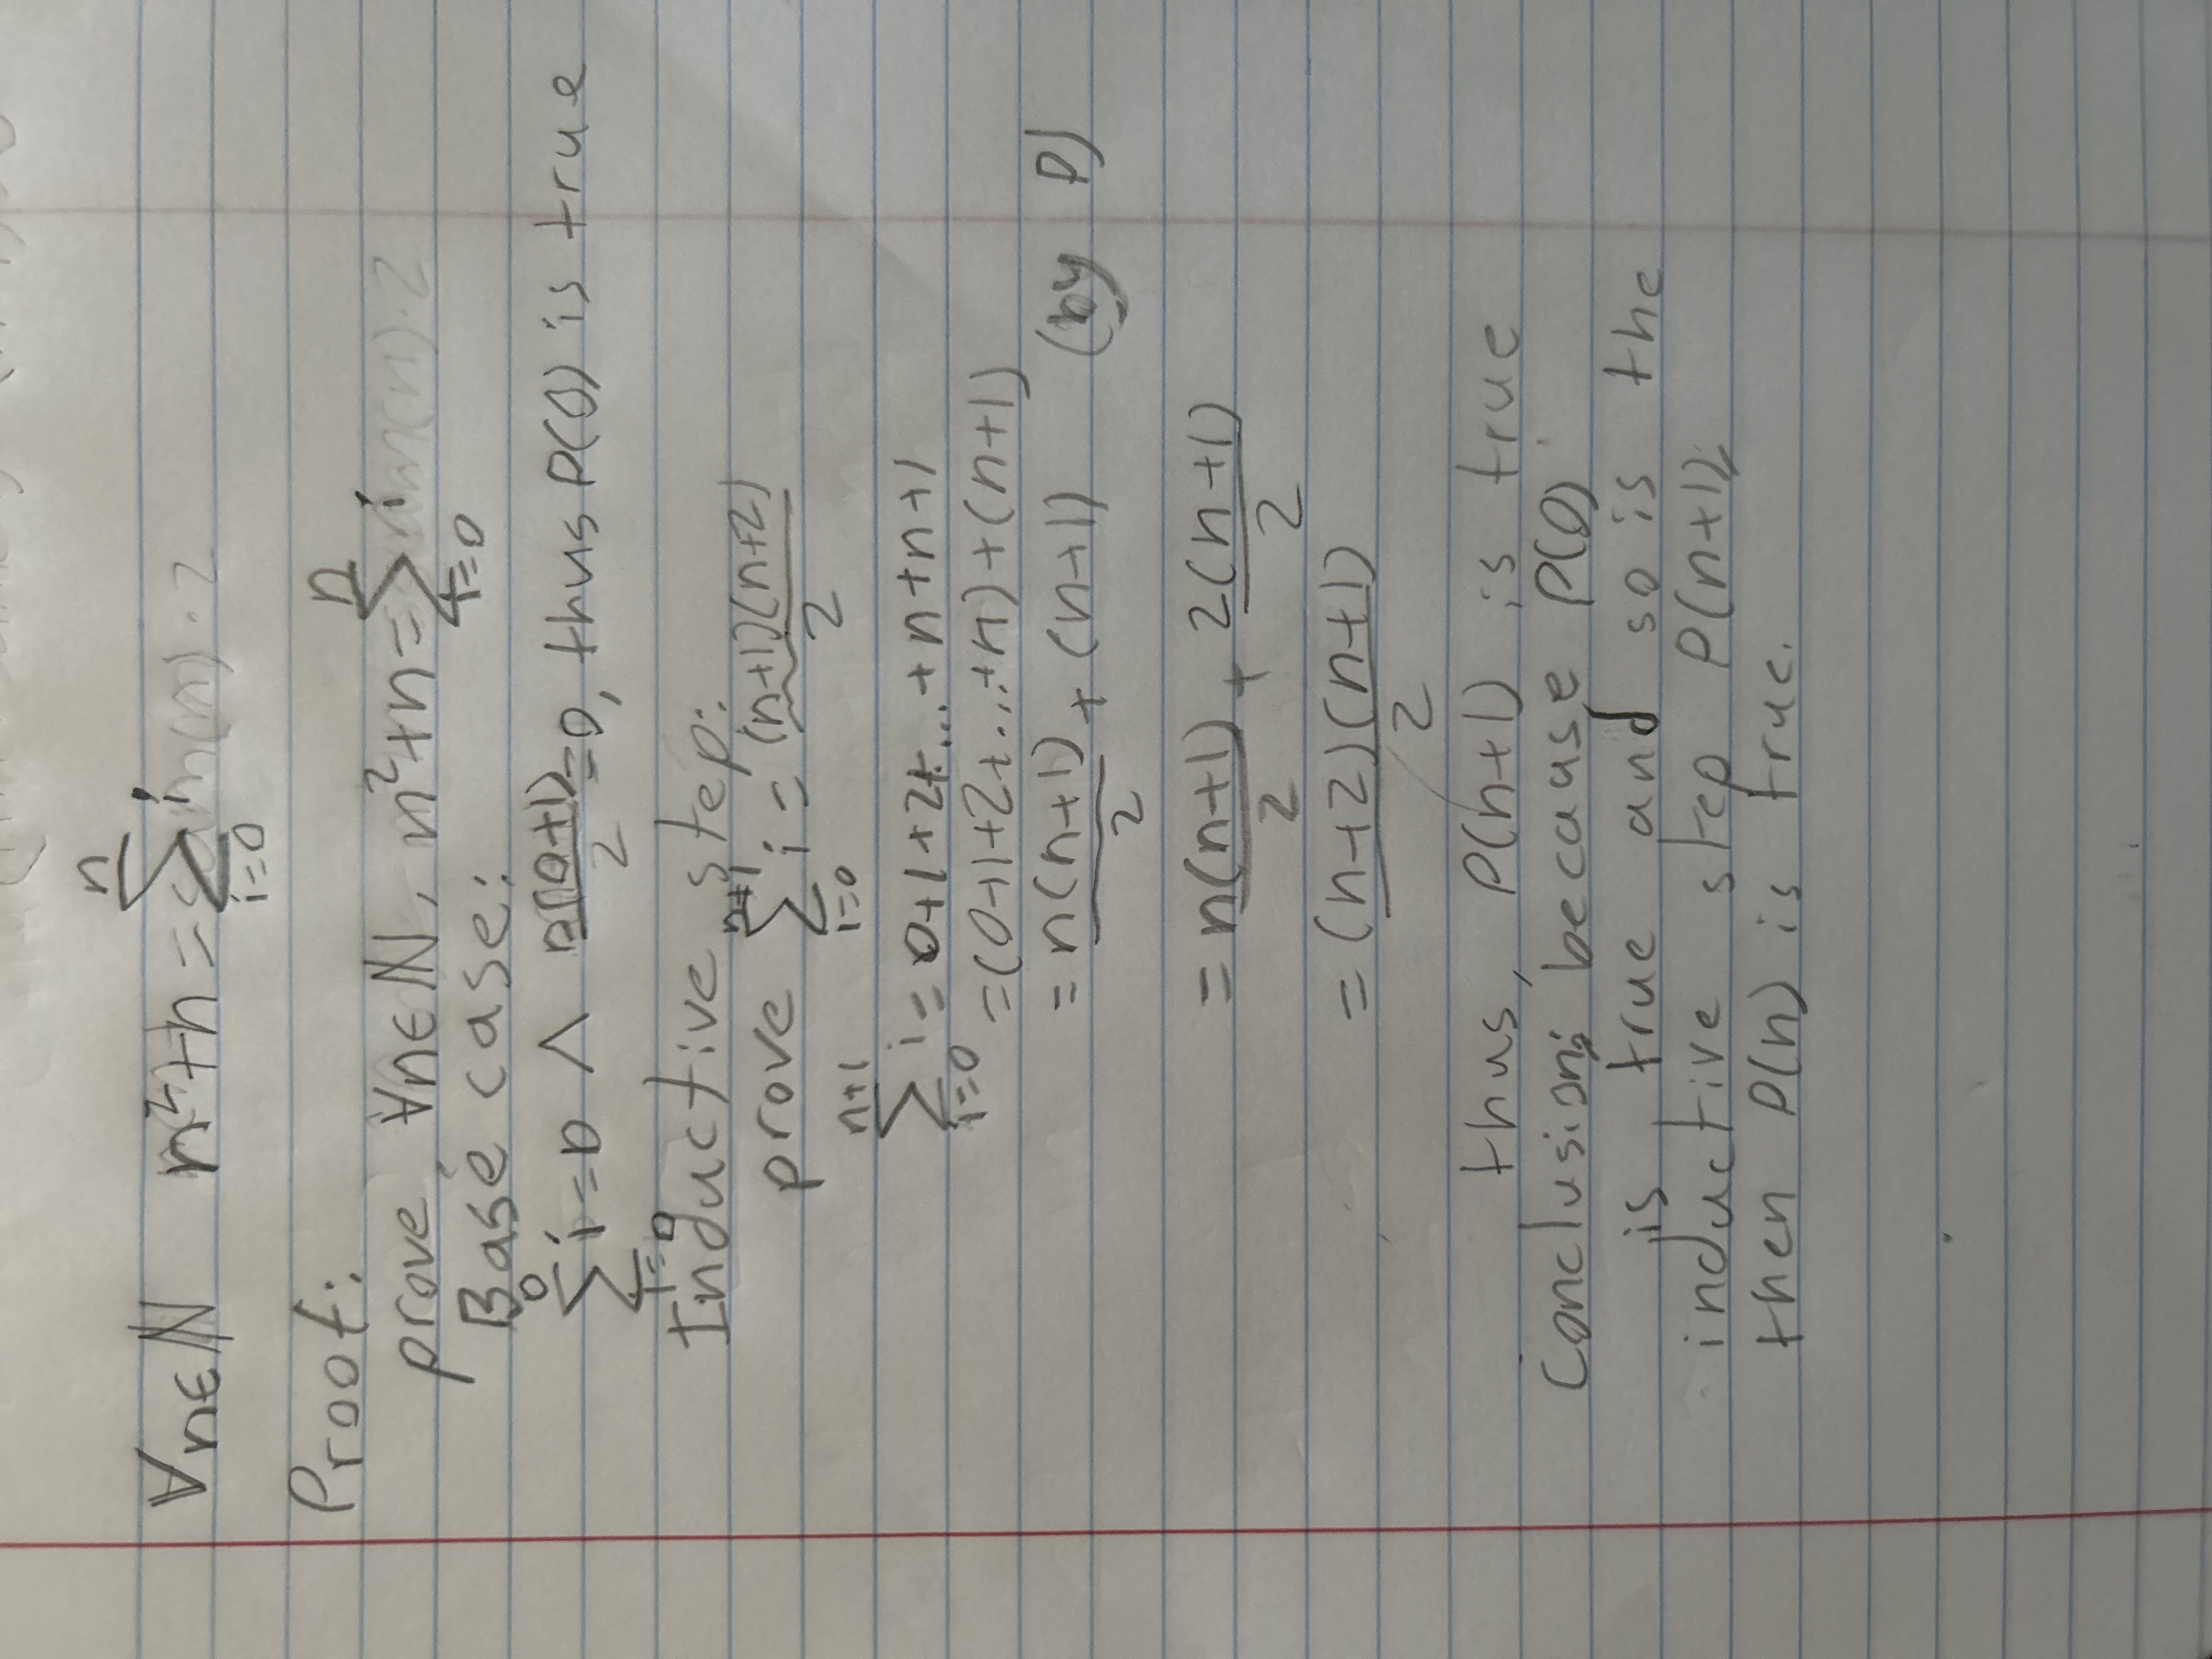 ∀n∈ℕ n²+n = ∑_{i=0}^{n} i
Proof:
prove, ∀n∈ℕ, n²+n = ∑_{i=0}^{n} i
Base case:
∑_{i=0}^{0} i = 0 ∧ 0(0+1)/2 = 0, thus P(0) is true
Inductive step:
prove ∑_{i=0}^{n+1} i = (n+1)(n+2)/2
∑_{i=0}^{n+1} i = 0+1+2+...+n+n+1
=(0+1+2+...+n)+(n+1)
= n(n+1)/2 + (n+1) (by P)
= n(n+1)/2 + 2(n+1)/2
= (n+2)(n+1)/2
thus, P(n+1) is true
Conclusion: because P(0)
is true and so is the
inductive step P(n+1),
then P(n) is true.